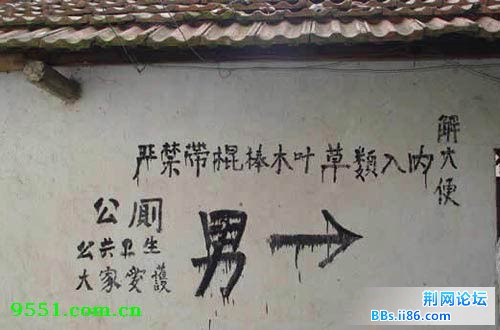 严禁帶棍棒木叶草類入内
解大便
公厠
公共卫生
大家爱護
男
9551.com.cn
荆网论坛
BBs.ii86.com